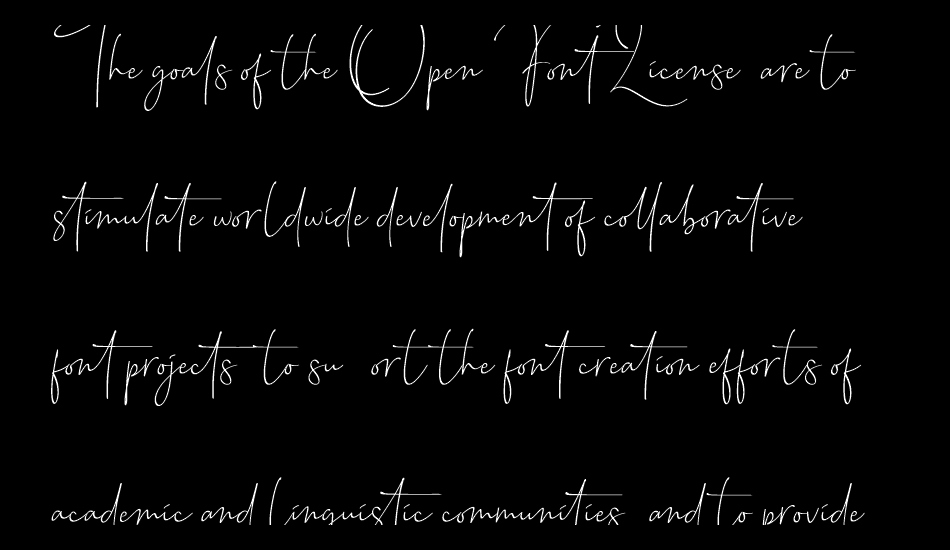 The goals of the Open Font License are to
stimulate worldwide development of collaborative
font projects to su ort the font creation efforts of
academic and linguistic communities and to provide